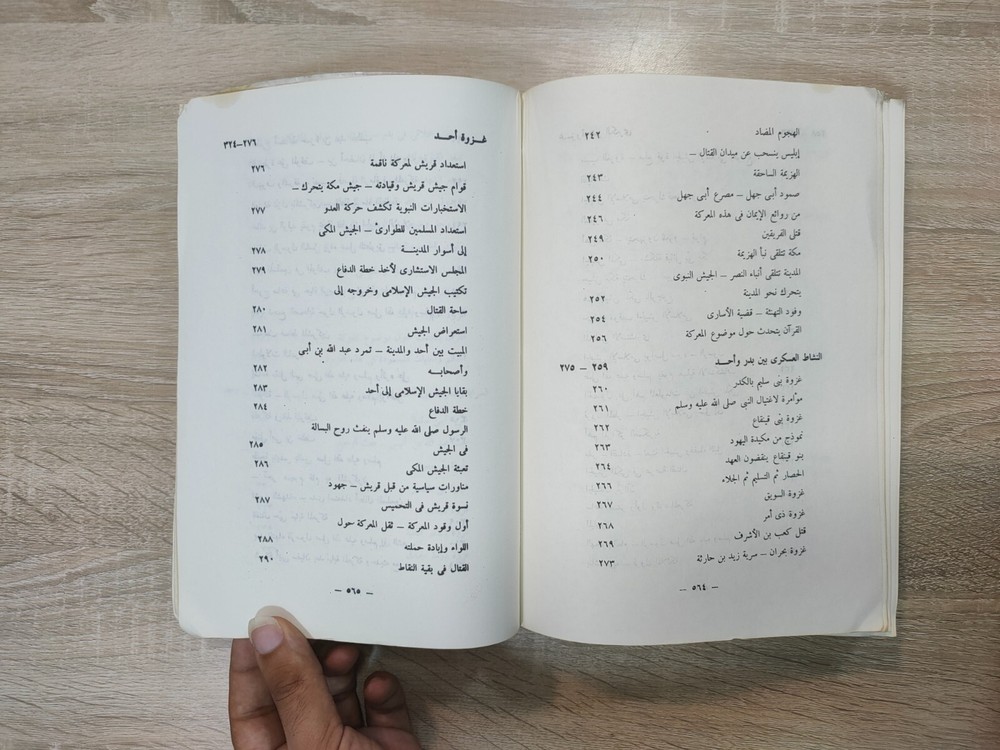 الهجوم المضاد ٢٤٢
إبليس ينسحب عن ميدان القتال ــ
الهزيمة الساحقة ٢٤٣
صمود أبى جهل ــ مصرع أبى جهل ٢٤٤
من روائع الإيمان فى هذه المعركة ٢٤٦
قتلى الفريقين ٢٤٩
مكة تتلقى نبأ الهزيمة ٢٥٠
المدينة تتلقى أنباء النصر ــ الجيش النبوى
يتحرك نحو المدينة ٢٥٢
وفود التهنئة ــ قضية الأسارى ٢٥٤
القرآن يتحدث حول موضوع المعركة ٢٥٦
النشاط العسكرى بين بدر وأحـــد ٢٥٩ ــ ٢٧٥
غزوة بنى سليم بالكدر ٢٦٠
موامرة لاغتيال النبى صلى الله عليه وسلم ٢٦١
غزوة بنى قينقاع ٢٦٢
نموذج من مكيدة اليهود ٢٦٣
بنو قينقاع ينقضون العهد ٢٦٤
الحصار ثم التسليم ثم الجلاء ٢٦٦
غزوة السويق ٢٦٧
غزوة ذى أمر ٢٦٨
قتل كعب بن الأشرف ٢٦٩
غزوة بحران ــ سرية زيد بن حارثة ٢٧٣
ــ ٥٦٤ ــ
غـــزوة أحـــد ٢٧٦ــ٣٢٤
استعداد قريش لمعركة ناقمة ٢٧٦
قوام جيش قريش وقيادته ــ جيش مكة يتحرك ــ
الاستخبارات النبوية تكشف حركة العدو ٢٧٧
استعداد المسلمين للطوارئ ــ الجيش المكى
إلى أسوار المدينـــة ٢٧٨
المجلس الاستشارى لأخذ خطة الدفاع ٢٧٩
تكتيب الجيش الإسلامى وخروجه إلى
ساحة القتال ٢٨٠
استعراض الجيش ٢٨١
المبيت بين أحد والمدينة ــ تمرد عبد الله بن أبى
وأصحابـــه ٢٨٢
بقايا الجيش الإسلامى إلى أحد ٢٨٣
خطة الدفاع ٢٨٤
الرسول صلى الله عليه وسلم ينفث روح البسالة
فى الجيش ٢٨٥
تعبئة الجيش المكى ٢٨٦
مناورات سياسية من قبل قريش ــ جهود
نسوة قريش فى التحميس ٢٨٧
أول وقود المعركة ــ ثقل المعركة حول
اللواء وإبادة حملته ٢٨٨
القتال فى بقية النقاط ٢٩٠
ــ ٥٦٥ ــ